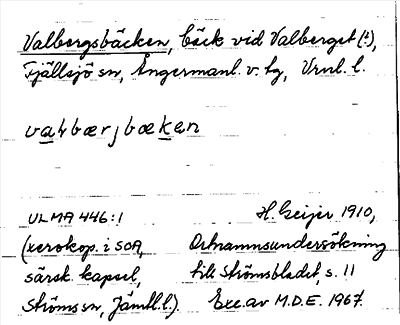 Valbergsbäcken, bäck vid Valberget (!),
Fjällsjö sn, Ångermanl. v. tg, Vrnl. l.
vahbærjbæken
ULMA 446:1 H. Geijer 1910,
(xerokop. i SOA, Ortnamnsundersökning
särsk. kapsel, till Strömsbladet, s. 11
Ströms sn, Jämtl. l.). Exc. av M.D.E. 1967.